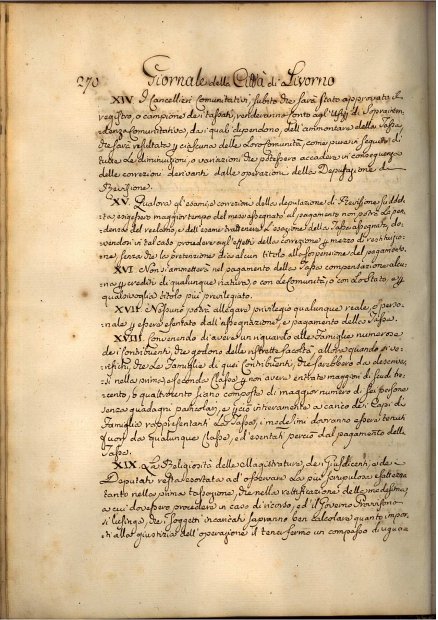 270 Giornale della Città di Livorno
XIV I Cancellieri Comunitativi, subito che sarà stato approvato il
registro o campione dei tassati, renderanno conto agl'Ufizj di Sopraintendenza
Comunitativa, da i quali dependono, dell'ammontare della Tassa,
che sarà resultata p ciascuna delle loro Comunità, come pure in seguito di
tutte le diminuzioni o variazioni che potessero accadere in conseguenza
delle correzioni derivanti dalle operazioni della Deputazione di
Revisione.
XV. Qualora gl'esami, e correzioni della deputazione di Revisione suddetta,
esigessero maggior tempo del mese assegnato al pagamento non potrà la pendenza
del reclamo, e dell'esame trattenere l'esazione della Tassa assegnata, dovendosi
in tal caso procedere agl'effetti della correzione p mezzo di restituzione,
senza che la pretenzione dia alcun titolo alla sospensione del pagamento.
XVI Non si ammetterà nel pagamento della Tassa compensazione alcuna
p credito di qualunque natura, o con le Comunità, o con lo Stato, e p
qualsivoglia titolo più privilegiato.
XVII. Nessuno potrà allegare privilegio qualunque reale, o personale
p essere esentato dall'assegnazione, e pagamento della Tassa.
XVIII. Convenendo di avere un riguardo alle Famiglie numerose
dei Contribuenti, che godono delle ristrette facoltà, allorquando si verifichi,
che le Famiglie di quei Contribuenti, che sarebbero da descriversi
nella prima, e seconda Classe p non avere entrate maggiori di scudi trecento,
o quattrocento siano composte di maggior numero di sei persone
senza guadagni particolari, e p ciò intieramente a carico dei Capi di
Famiglia rappresentanti la Tassa, i medesimi dovranno essere tenuti
fuori da qualunque Classe, ed esentati perciò dal pagamento della
Tassa.
XIX. La Religiosità delle Magistrature, dei Giusdicenti, e dei
Deputati resta esortata ad osservare la più scrupolosa esattezza
tanto nella prima tassazione, che nella rettificazione della medesima,
a cui dovessero procedere in caso di ricorso, ed il Governo Provvisorio
si lusinga, che i soggetti incaricati sapranno ben calcolare quanto importi
alla giustizia dell'operazione il tener fermo un compasso di ugua